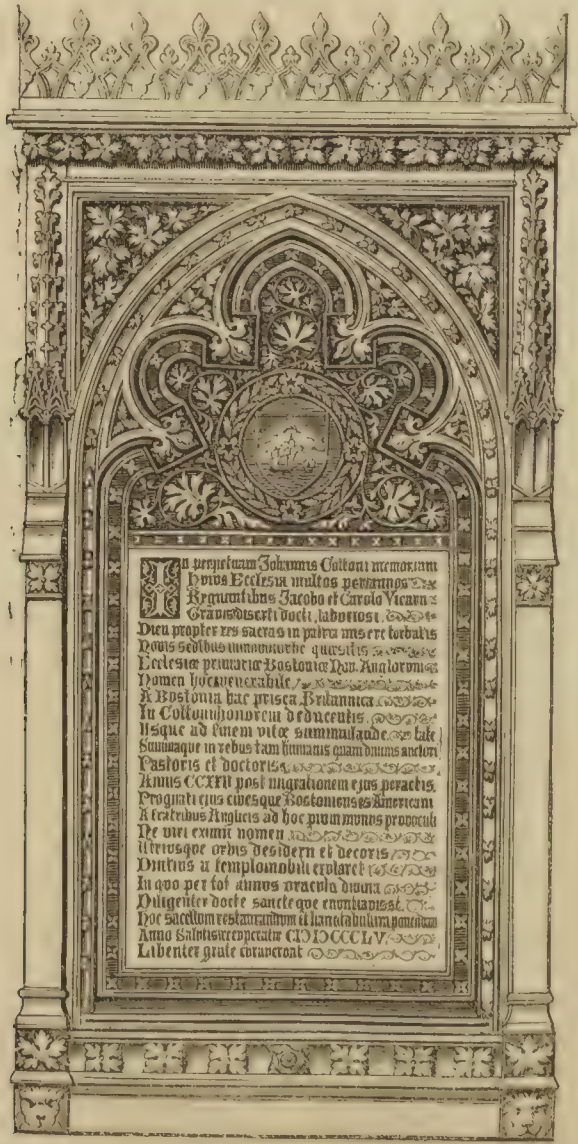 In perpetuam Johannis Cottoni memoriam
Huius Ecclesiæ multos per annos
Regnantibus Jacobo et Carolo Vicarii
Gravis diserti docti laboriosi
Dieu propter res sacras in patria misere turbatis
Novis sedibus in novo orbe quæsitis
Ecclesiæ primariæ Bostoniæ Nov. Anglorum
Nomen hoc venerabile
A Bostonia hac prisca Britannica
In Cottoni honorem deducentis
Usque ad finem vitæ summa laude
Summaque in rebus tam humanis quam divinis auctori
Pastoris et doctoris tate
Annis CCXXII post migrationem ejus peractis
Prognati ejus civesque Bostonienses Americani
A fratribus Anglicis ad hoc pium munus provocati
Ne viri eximii nomen
Utriusque orbis desiderii et decoris
Diutius a templo nobili exularet
In quo per tot annos oracula divina
Diligenter docte sancteque enuntiavisset
Hoc sacellum restaurandum et hanc tabulam ponendam
Anno Salutis recuperatæ CIƆIƆCCCLV
Libenter grate curaverunt